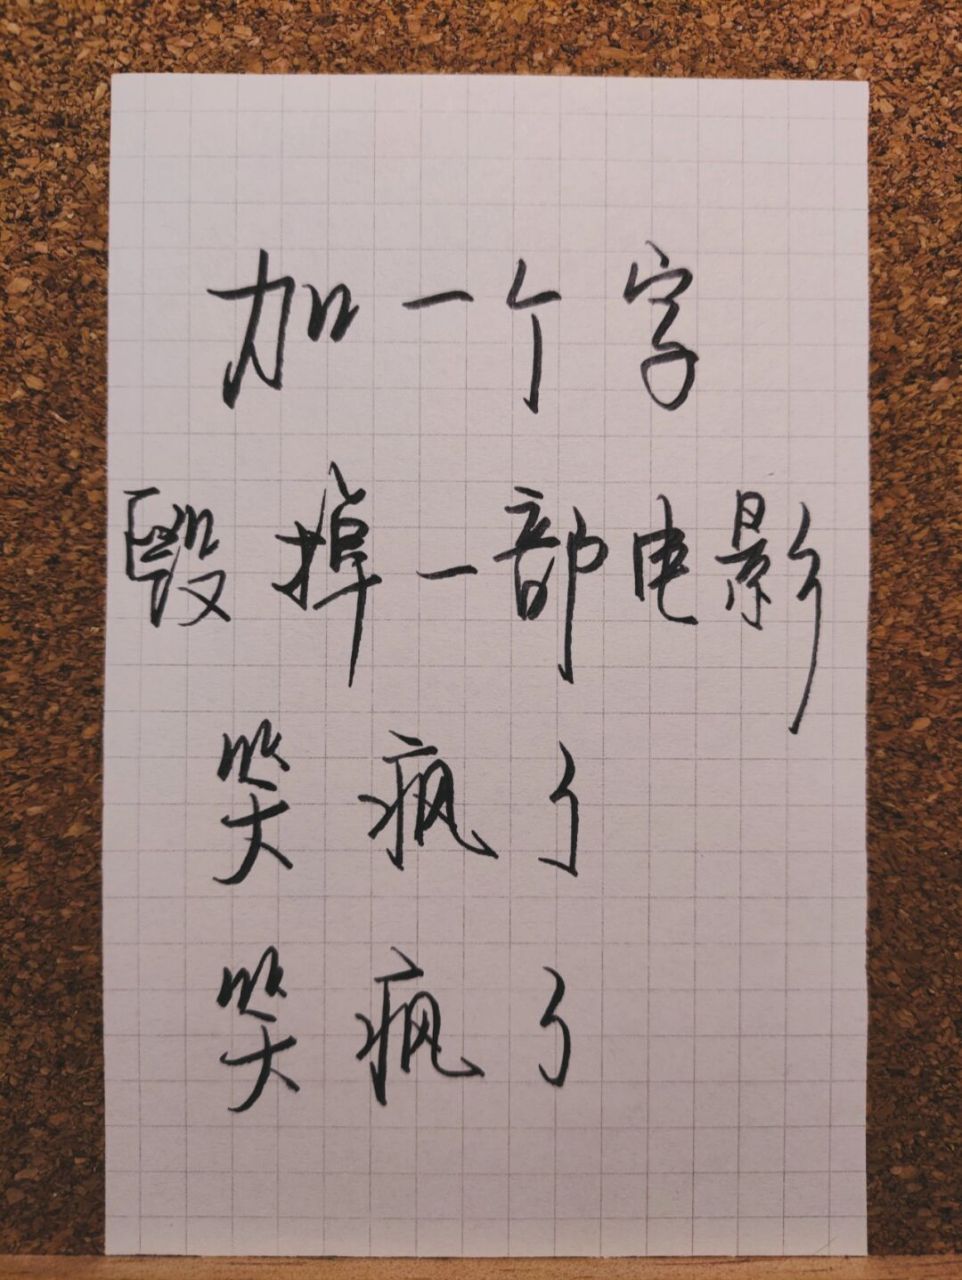 加一个字
毁掉一部电影
笑疯了
笑疯了